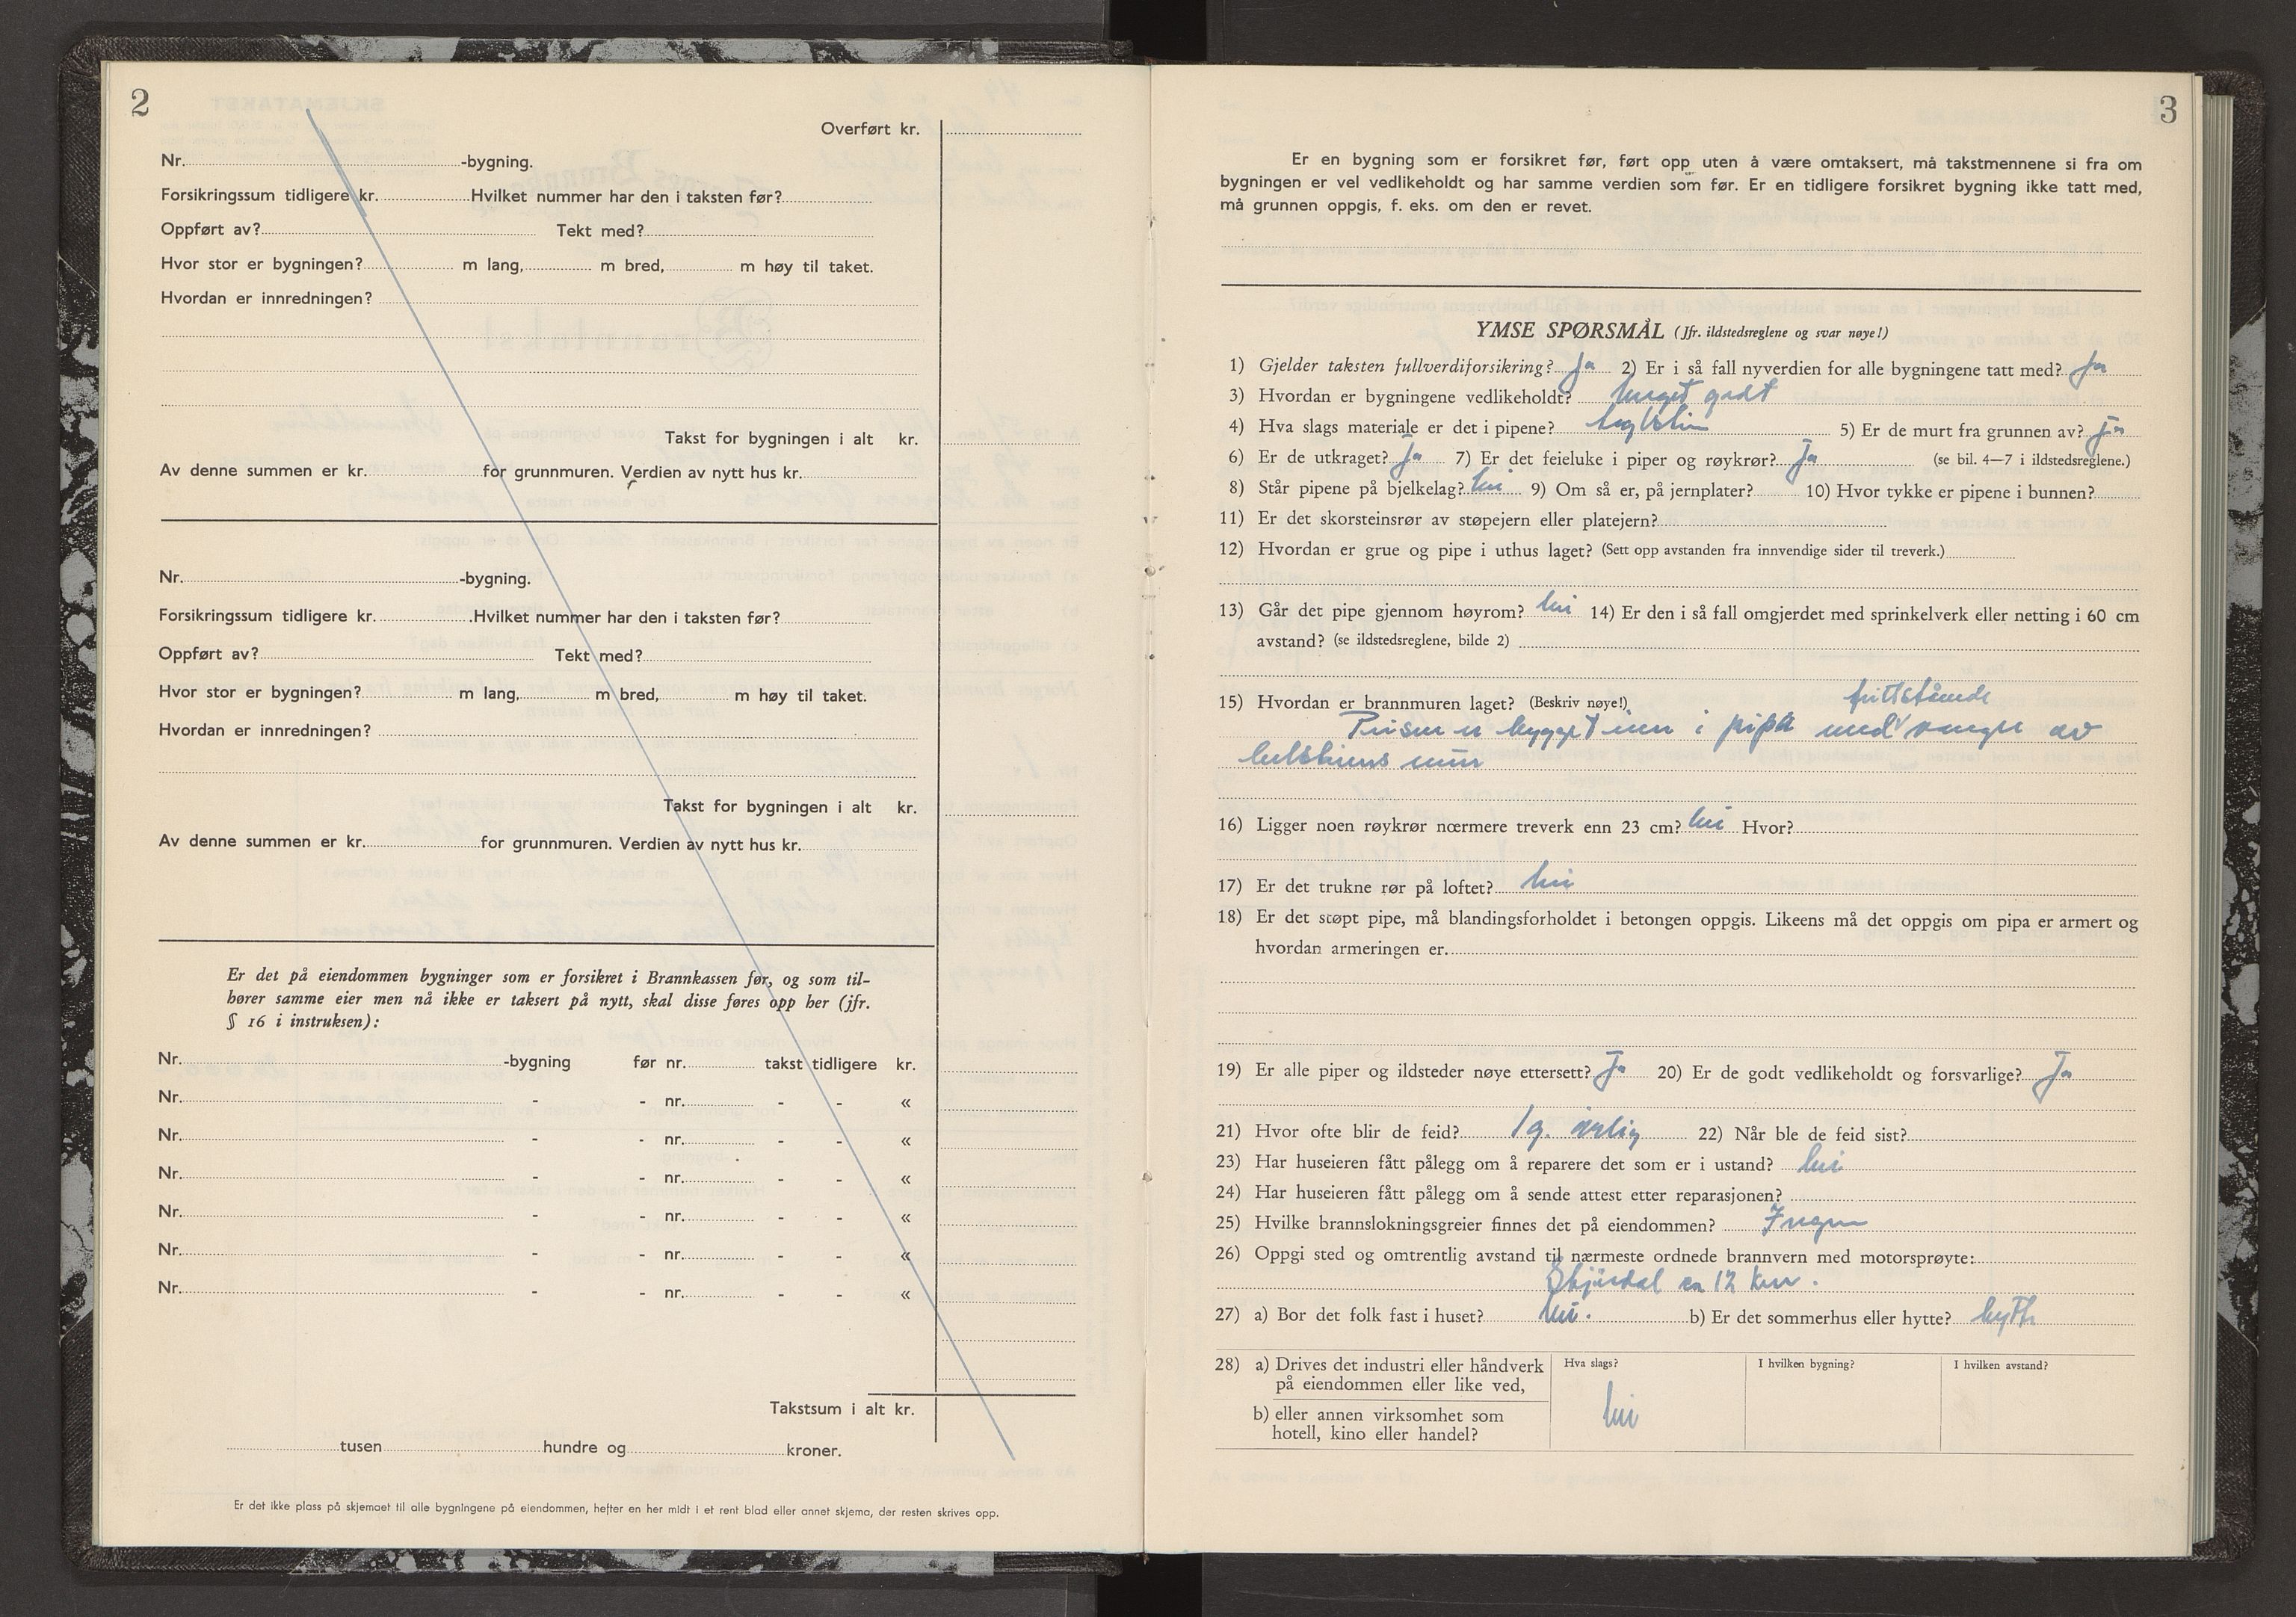 2
Overført kr.
Nr. -bygning.
Forsikringssum tidligere kr. Hvilket nummer har den i taksten før?
Oppført av? Tekt med?
Hvor stor er bygningen? m lang, m bred, m høy til taket.
Hvordan er innredningen?
Takst for bygningen i alt kr.
Av denne summen er kr. for grunnmuren. Verdien av nytt hus kr.
Nr. -bygning.
Forsikringssum tidligere kr. Hvilket nummer har den i taksten før?
Oppført av? Tekt med?
Hvor stor er bygningen? m lang, m bred, m høy til taket.
Hvordan er innredningen?
Takst for bygningen i alt kr.
Av denne summen er kr. for grunnmuren. Verdien av nytt hus kr.
Er det på eiendommen bygninger som er forsikret i Brannkassen før, og som til-
hører samme eier men nå ikke er taksert på nytt, skal disse føres opp her (jfr.
§ 16 i instruksen):
Nr. -bygning før nr. takst tidligere kr.
Nr. - - nr. - - «
Nr. - - nr. - - «
Nr. - - nr. - - «
Nr. - - nr. - - «
Nr. - - nr. - - «
Nr. - - nr. - - «
Takstsum i alt kr.
tusen hundre og kroner.
Er det ikke plass på skjemaet til alle bygningene på eiendommen, hefter en her midt i et rent blad eller annet skjema, der resten skrives opp.
3
Er en bygning som er forsikret før, ført opp uten å være omtaksert, må takstmennene si fra om
bygningen er vel vedlikeholdt og har samme verdien som før. Er en tidligere forsikret bygning ikke tatt med,
må grunnen oppgis, f. eks. om den er revet.
YMSE SPØRSMÅL (Jfr. ildstedsreglene og svar nøye!)
1) Gjelder taksten fullverdiforsikring? Ja 2) Er i så fall nyverdien for alle bygningene tatt med? Ja
3) Hvordan er bygningene vedlikeholdt? meget godt
4) Hva slags materiale er det i pipene? teglstein 5) Er de murt fra grunnen av? Ja
6) Er de utkraget? Ja 7) Er det feieluke i piper og røykrør? Ja (se bil. 4—7 i ildstedsreglene.)
8) Står pipene på bjelkelag? Nei 9) Om så er, på jernplater? 10) Hvor tykke er pipene i bunnen?
11) Er det skorsteinsrør av støpejern eller platejern?
12) Hvordan er grue og pipe i uthus laget? (Sett opp avstanden fra innvendige sider til treverk.)
13) Går det pipe gjennom høyrom? Nei 14) Er den i så fall omgjerdet med sprinkelverk eller netting i 60 cm
avstand? (se ildstedsreglene, bilde 2)
15) Hvordan er brannmuren laget? (Beskriv nøye!) frittstående
Peisen er bygget inn i pipa med vanger av
helsteins mur
16) Ligger noen røykrør nærmere treverk enn 23 cm? Nei Hvor?
17) Er det trukne rør på loftet? Nei
18) Er det støpt pipe, må blandingsforholdet i betongen oppgis. Likeens må det oppgis om pipa er armert og
hvordan armeringen er.
19) Er alle piper og ildsteder nøye ettersett? Ja 20) Er de godt vedlikeholdt og forsvarlige? Ja
21) Hvor ofte blir de feid? 1 g. årlig 22) Når ble de feid sist?
23) Har huseieren fått pålegg om å reparere det som er i ustand? Nei
24) Har huseieren fått pålegg om å sende attest etter reparasjonen?
25) Hvilke brannslokningsgreier finnes det på eiendommen? Ingen
26) Oppgi sted og omtrentlig avstand til nærmeste ordnede brannvern med motorsprøyte:
ca 12 km.
27) a) Bor det folk fast i huset? Nei. b) Er det sommerhus eller hytte? hytte
28) a) Drives det industri eller håndverk
på eiendommen eller like ved,
b) eller annen virksomhet som
hotell, kino eller handel?
Hva slags?
Nei
I hvilken bygning?
I hvilken avstand?